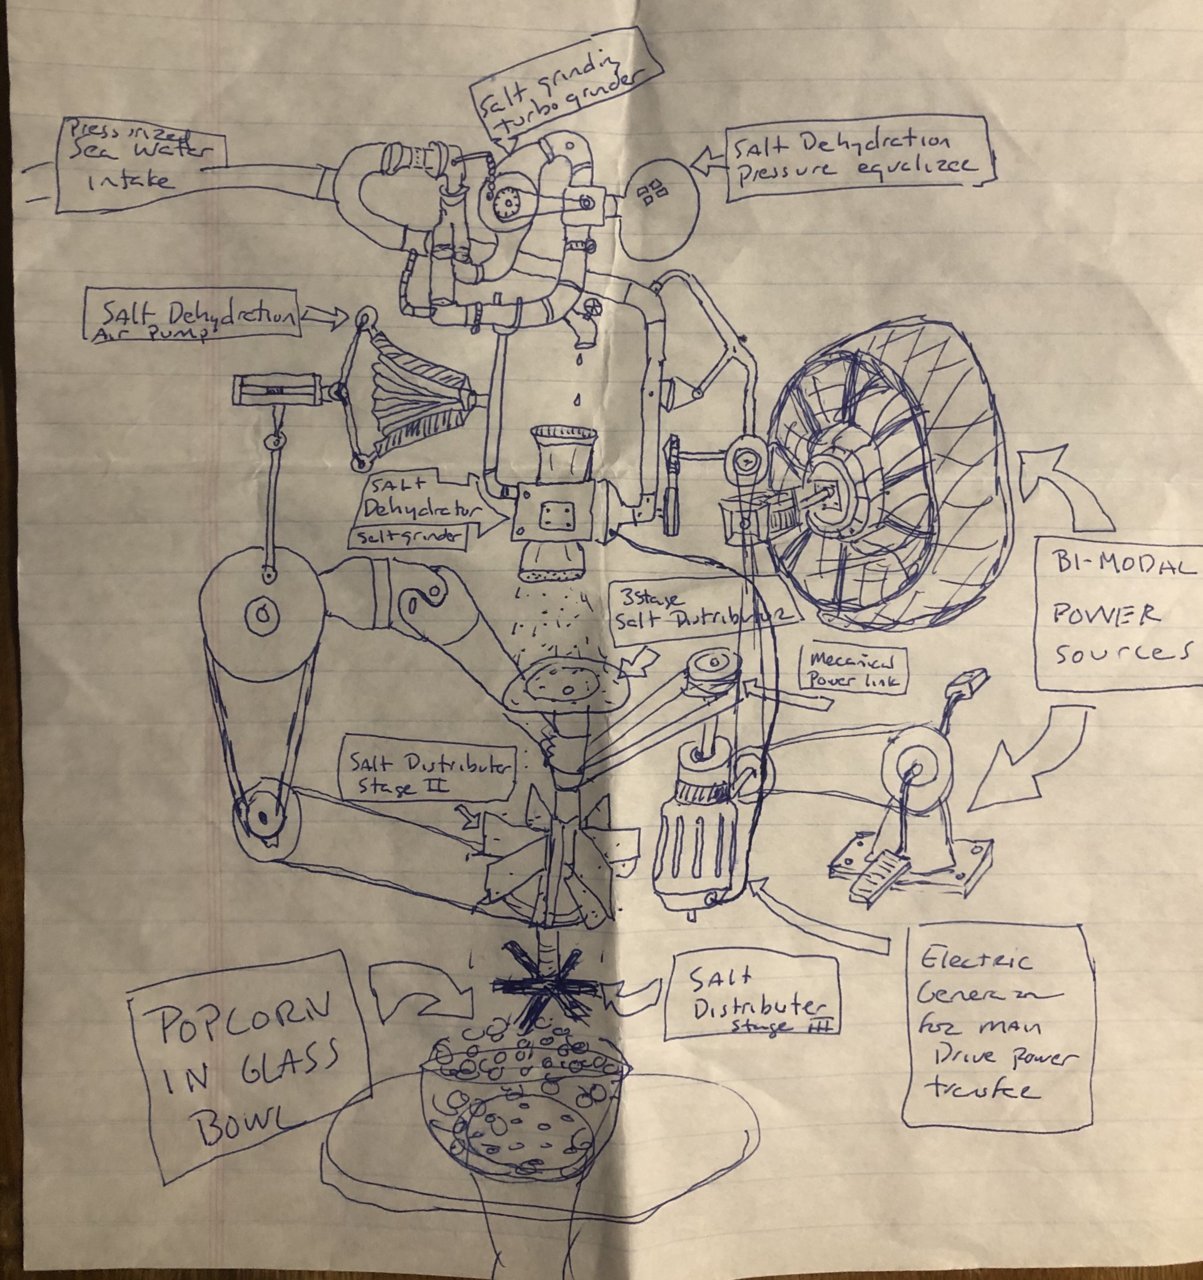 Salt grinding
turbo grinder
Pressurized
Sea Water
intake
SALT Dehydration
Pressure equalizer
SALT Dehydration
Air Pump
SALT
Dehydrator
Salt grinder
3 Stage
Salt Distributor
BI-MODAL
POWER
SOURCES
Mecanical
Power link
SALT Distributer
Stage II
SALT
Distributer
Stage III
Electric
Generator
for main
Drive power
transfer
POPCORN
IN GLASS
BOWL